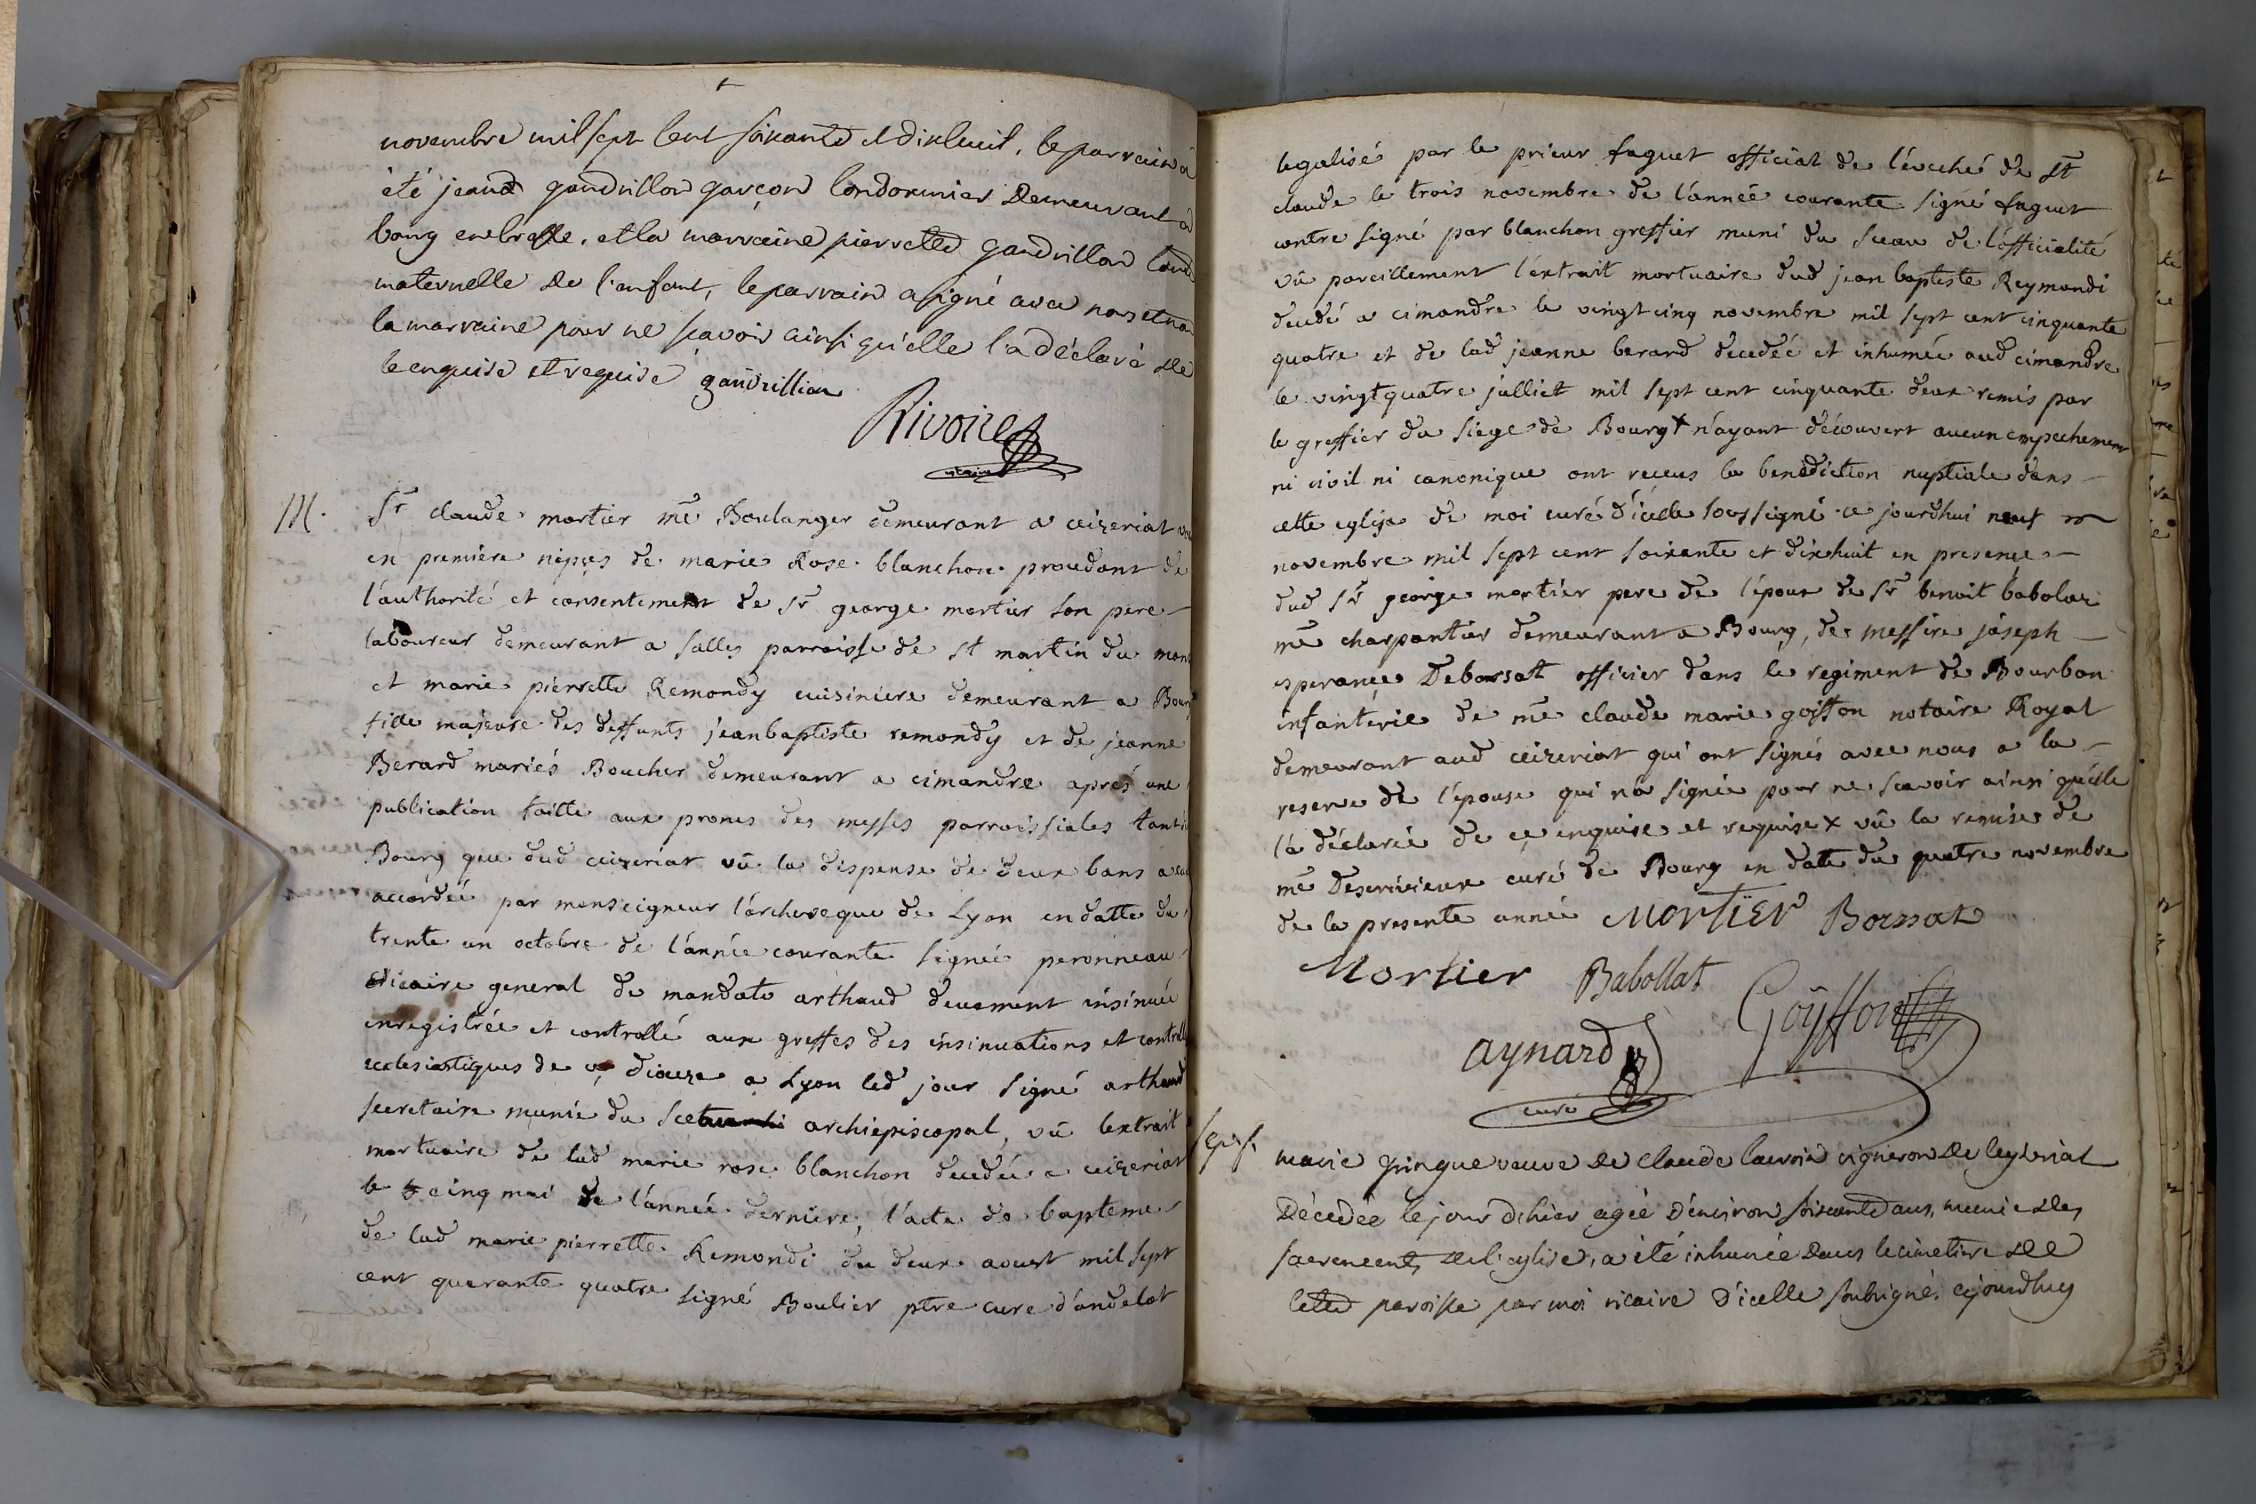 novembre mil sept cent soixante et dixhuit, le parrain a
été jean gandrillon garçon Cordonnier Demeurant a
bourg en bresse, et la marraine pierrette gandrillon tante
maternelle de l'enfant, le parrain a signé avec nous et non
la marraine pour ne scavoir ainsi qu'elle l'a déclaré de
ce enquise et requise gandrillion
Rivoire
vicaire
M.
Sr claude mortier me Boulanger demeurant a ceizeriat
en premiere nopces de marie Rose blanchon procedant de
l'authorité et consentement de Sr george mortier son pere
laboureur demeurant a salles parroisse de st martin du mont
et marie pierrette Remondy cuisiniere demeurant a Bourg
fille majeure des deffunts jeanbaptiste remondy et de jeanne
Berard mariés Boucher demeurant a cimandre aprés une
publication faitte aux prones des messes parroissiales tant de
Bourg que dud ceizeriat vû la dispense de deux bans a eux
accordée par monseigneur l'archeveque de Lyon en datte du
trente un octobre de l'année courante signée peronneau
vicaire general de mandato arthaud deuement insinuée
enregistrée et controllé aux greffes des insinuations et controlles
ecclesiastiques de ce dioceze a Lyon led jour signé arthaud
secretaire munie du sceau archiepiscopal, vû lextrait
mortuaire de lad marie rose blanchon decedée a ceizeriat
le cinq mai de l'année derniere, l'acte de bapteme
de lad marie pierrette Remondi du deux aoust mil sept
cent quarante quatre signé Boulier ptre cure d'andelot
legalisé par le prieur faguet official de l'éveché de st
claude le trois novembre de l'année courante signé faguet
contre signé par blanchon greffier muni du sceau de l'officialité
vû pareillement l'extrait mortuaire dud jean baptiste Reymondi
decedé a cimandre le vingt cinq novembre mil sept cent cinquante
quatre et de lad jeanne berard decedéé et inhumée aud cimandre
le vingtquatre julliet mil sept cent cinquante deux remis par
le greffier du siege de Bourg + n'ayant découvert aucun empechement
ni civil ni canonique ont receus la benediction nuptiale dans
cette eglise de moi curé d'icelle soussigné ce jourdhui neuf
novembre mil sept cent soixante et dixhuit en presence
dud Sr george mortier pere de l'époux de Sr benoit babolat
me charpantier demeurant a Bourg, de messire joseph
esperance Deborsat officier dans le regiment de Bourbon
infanterie de me claude marie goiffon notaire Royal
demeurant aud ceizeriat qui ont signés avec nous a la
reserve de l'épouse qui n'a signée pour ne scavoir ainsi qu'elle
l'a déclarée de ce enquise et requise + vû la remise de
me Descrivieux curé de Bourg en datte du quatre novembre
de la presente année Mortier Borssat
Mortier Babollat
Goyffon
aynard
curé
marie gringue veuve de claude Lacroix vigneron de Ceyzeriat
Décedée le jour d'hier agée d'environ soixante ans, munie des
sacrements de l'eglise, a été inhumée dans le cimetiere de
cette paroisse par moi vicaire d'icelle soussigné cejourdhuy